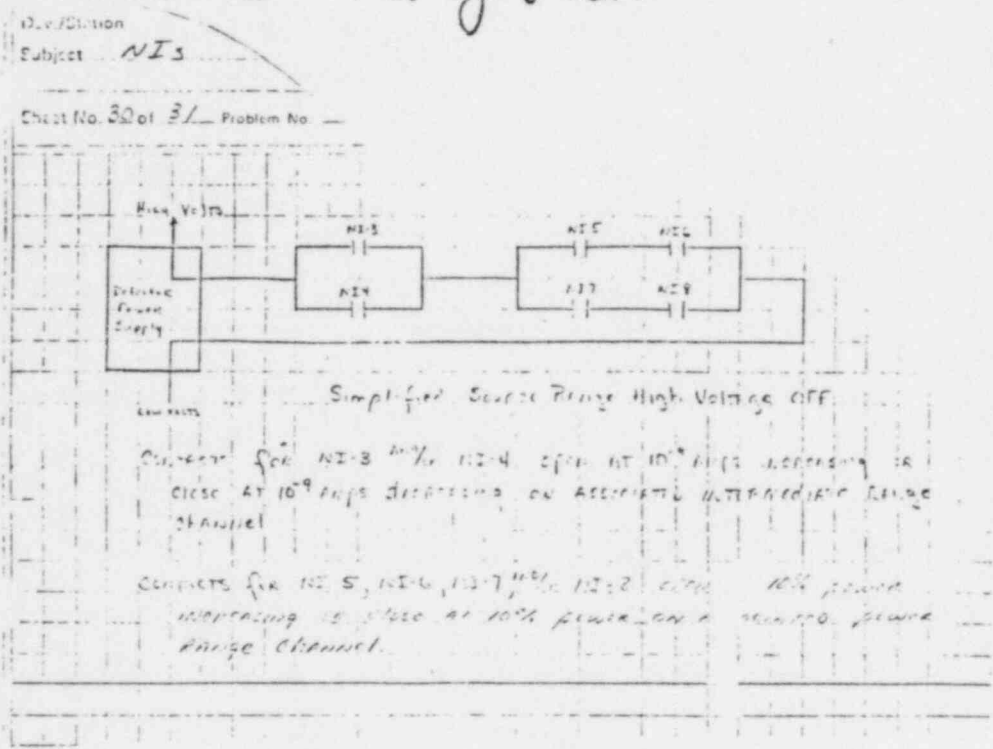 Div./Station
Subject NIs
Sheet No. 30 of 31 Problem No.
High Volts
NI-3
NI4
NI5 NI6
NI7 NI8
Detector
Power
Supply
Low Volts
Simplified Source Range High Voltage OFF
Contacts for NI-3 and/or NI-4 open at 10⁻⁹ Amps increasing or
close at 10⁻⁹ Amps decreasing on associated intermediate range
channel
Contacts for NI 5, NI-6, NI-7, and/or 10% power
increasing or close at 10% power on a power
range channel.